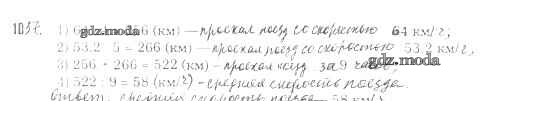 1037. 1) 64 · 4 = 256 (км) — проехал поезд со скоростью 64 км/ч;
2) 53,2 · 5 = 266 (км) — проехал поезд со скоростью 53,2 км/ч;
3) 256 + 266 = 522 (км) – проехал поезд за 9 часов;
4) 522 : 9 = 58 (км/ч) – средняя скорость поезда.
Ответ: средняя скорость поезда — 58 км/ч
gdz.moda
gdz.moda